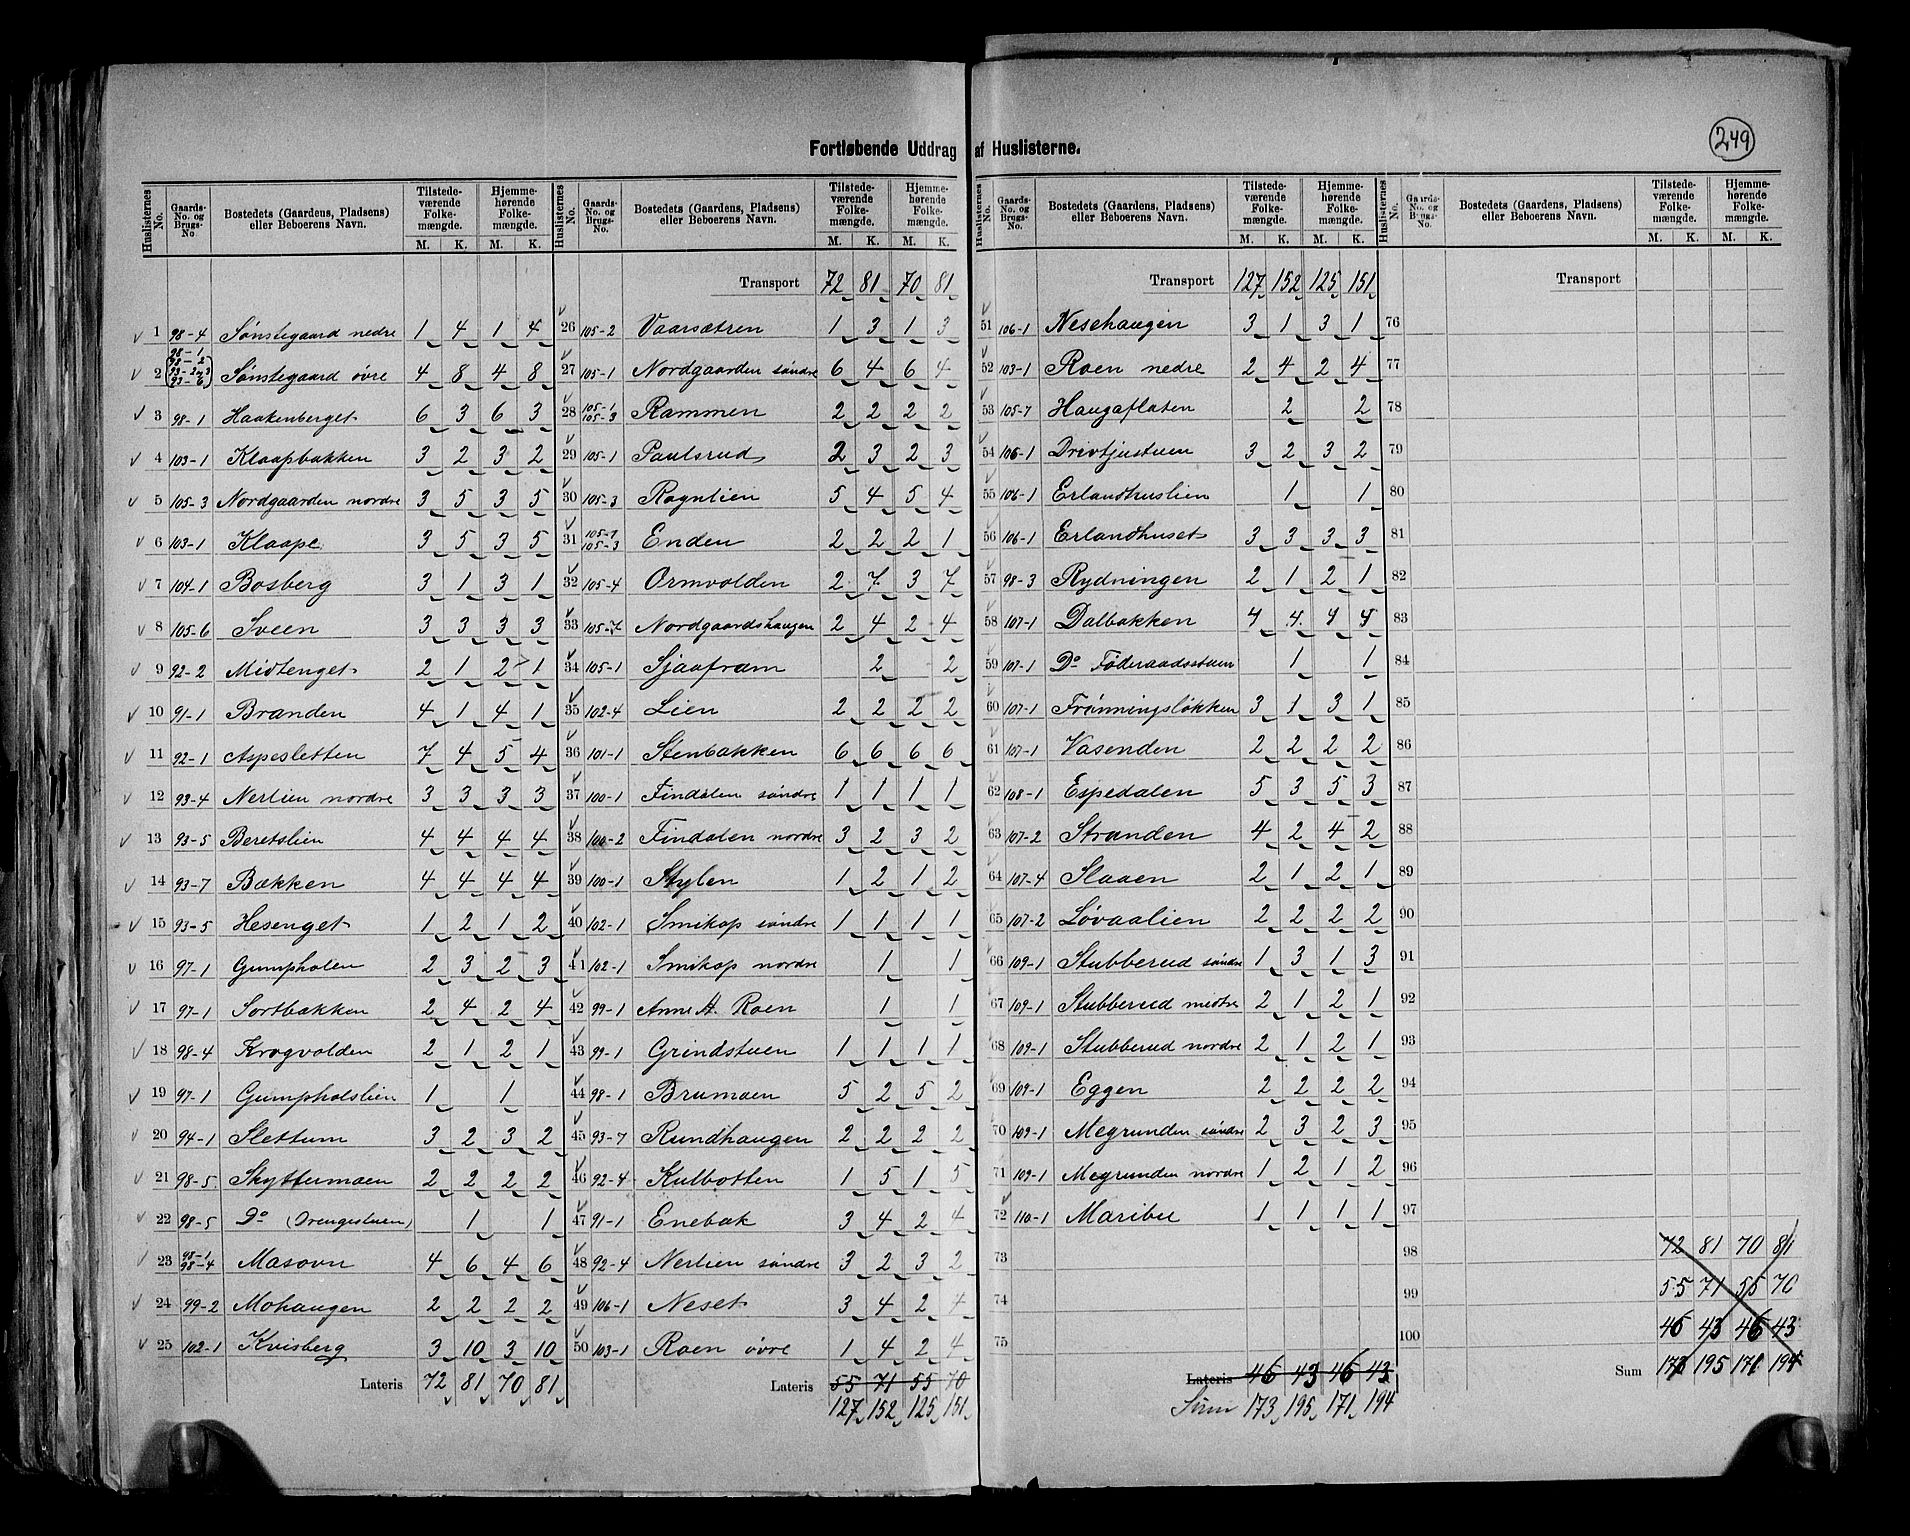 249
Fortløbende Uddrag af Huslisterne.
Huslisternes No. | Gaards-No. og Brugs-No. | Bostedets (Gaardens, Pladsens) eller Beboerens Navn. | Tilstedeværende Folkemængde. M. K. | Hjemmehørende Folkemængde. M. K.
1 98-4 Sønstegaard nedre 1 4 1 4
2 98-1 98-2 93-2 93-6 Sønstegaard øvre 4 8 4 8
3 98-1 Haakenberget 6 3 6 3
4 103-1 Klaapbakken 3 2 3 2
5 105-3 Nordgaarden nordre 3 5 3 5
6 103-1 Klaape 3 5 3 5
7 104-1 Bosberg 3 1 3 1
8 105-6 Sveen 3 3 3 3
9 92-2 Midtenget 2 1 2 1
10 91-1 Branden 4 1 4 1
11 92-1 Aspesletten 7 4 5 4
12 93-4 Nerlien nordre 3 3 3 3
13 93-5 Beretslien 4 4 4 4
14 93-7 Bækken 4 4 4 4
15 93-5 Hesenget 1 2 1 2
16 97-1 Gumpholen 2 3 2 3
17 97-1 Sortbakken 2 4 2 4
18 98-4 Krogvolden 2 1 2 1
19 97-1 Gumpholslien 1 1
20 94-1 Slettum 3 2 3 2
21 98-5 Skyttermoen 2 2 2 2
22 98-5 Do (Drengestuen) 1 1
23 98-1 98-4 Masovn 4 6 4 6
24 99-2 Mohaugen 2 2 2 2
25 102-1 Kvisberg 3 10 3 10
Lateris 72 81 70 81
Huslisternes No. | Gaards-No. og Brugs-No. | Bostedets (Gaardens, Pladsens) eller Beboerens Navn. | Tilstedeværende Folkemængde. M. K. | Hjemmehørende Folkemængde. M. K.
Transport 72 81 70 81
26 105-2 Vaarsætren 1 3 1 3
27 105-1 Nordgaarden søndre 6 4 6 4
28 105-1 105-3 Rammen 2 2 2 2
29 105-1 Paulsrud 2 3 2 3
30 105-3 Rognlien 5 4 5 4
31 105-7 105-3 Enden 2 2 2 1
32 105-4 Ormvolden 2 7 3 7
33 105-7 Nordgaardshaugen 2 4 2 4
34 105-1 Sjaafram 2 2
35 102-4 Lien 2 2 2 2
36 101-1 Stenbakken 6 6 6 6
37 100-1 Findalen søndre 1 1 1 1
38 100-2 Findalen nordre 3 2 3 2
39 100-1 Stylen 1 2 1 2
40 102-1 Smikop søndre 1 1 1 1
41 102-1 Smikop nordre 1 1
42 99-1 Anne A. Roen 1 1
43 99-1 Grindstuen 1 1 1 1
44 98-1 Brumoen 5 2 5 2
45 93-7 Rundhaugen 2 2 2 2
46 92-4 Kulbotten 1 5 1 5
47 91-1 Enebak 3 4 2 4
48 92-4 Nerlien søndre 3 2 3 2
49 106-1 Neset 3 4 2 4
50 103-1 Roen øvre 1 4 2 4
Lateris 55 71 55 70
127 152 125 151
Huslisternes No. | Gaards-No. og Brugs-No. | Bostedets (Gaardens, Pladsens) eller Beboerens Navn. | Tilstedeværende Folkemængde. M. K. | Hjemmehørende Folkemængde. M. K.
Transport 127 152 125 151
51 106-1 Nesehaugen 3 1 3 1
52 103-1 Roen nedre 2 4 2 4
53 105-7 Haugaflaten 2 2
54 106-1 Drivtjustuen 3 2 3 2
55 106-1 Erlandhuslien 1 1
56 106-1 Erlandhuset 3 3 3 3
57 98-3 Rydningen 2 1 2 1
58 107-1 Dalbakken 4 4 4 4
59 107-1 Do Føderaadsstuen 1 1
60 107-1 Frønningsløkken 3 1 3 1
61 107-1 Vasenden 2 2 2 2
62 108-1 Espedalen 5 3 5 3
63 107-2 Stranden 4 2 4 2
64 107-4 Slaaen 2 1 2 1
65 107-2 Løvaalien 2 2 2 2
66 109-1 Stubberud søndre 1 3 1 3
67 109-1 Stubberud midtre 2 1 2 1
68 109-1 Stubberud nordre 2 1 2 1
69 109-1 Eggen 2 2 2 2
70 109-1 Megrunden søndre 2 3 2 3
71 109-1 Megrunden nordre 1 2 1 2
72 110-1 Maribu 1 1 1 1
73
74
75
Lateris 46 43 46 43
Sum 173 195 171 194
Huslisternes No. | Gaards-No. og Brugs-No. | Bostedets (Gaardens, Pladsens) eller Beboerens Navn. | Tilstedeværende Folkemængde. M. K. | Hjemmehørende Folkemængde. M. K.
Transport
76
77
78
79
80
81
82
83
84
85
86
87
88
89
90
91
92
93
94
95
96
97
98 72 81 70 81
99 55 71 55 70
100 46 43 46 43
Sum 173 195 171 194